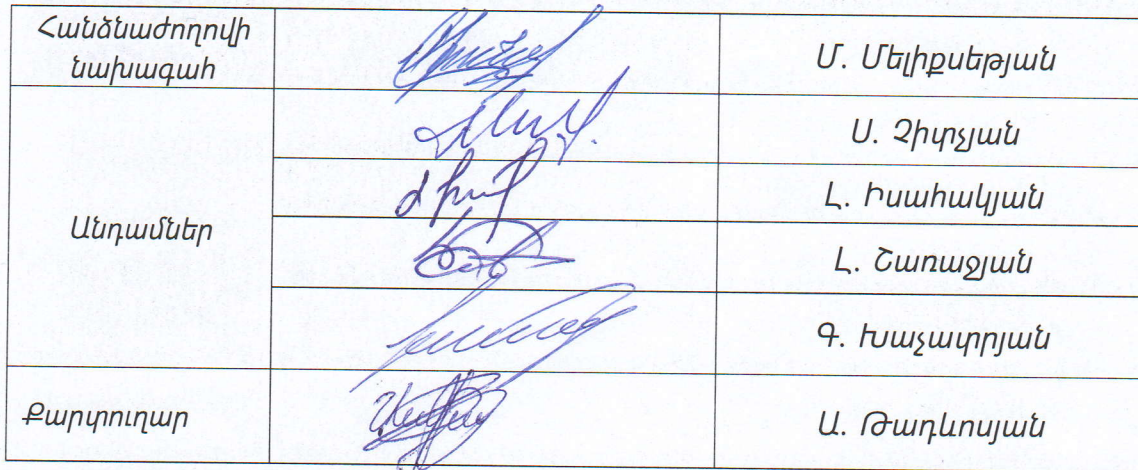 Հանձնաժողովի
նախագահ
Մ. Մելիքսեթյան
Անդամներ
Ս. Չիտչյան
Լ. Իսահակյան
Լ. Շառաջյան
Գ. Խաչատրյան
Քարտուղար
Ա. Թադևոսյան